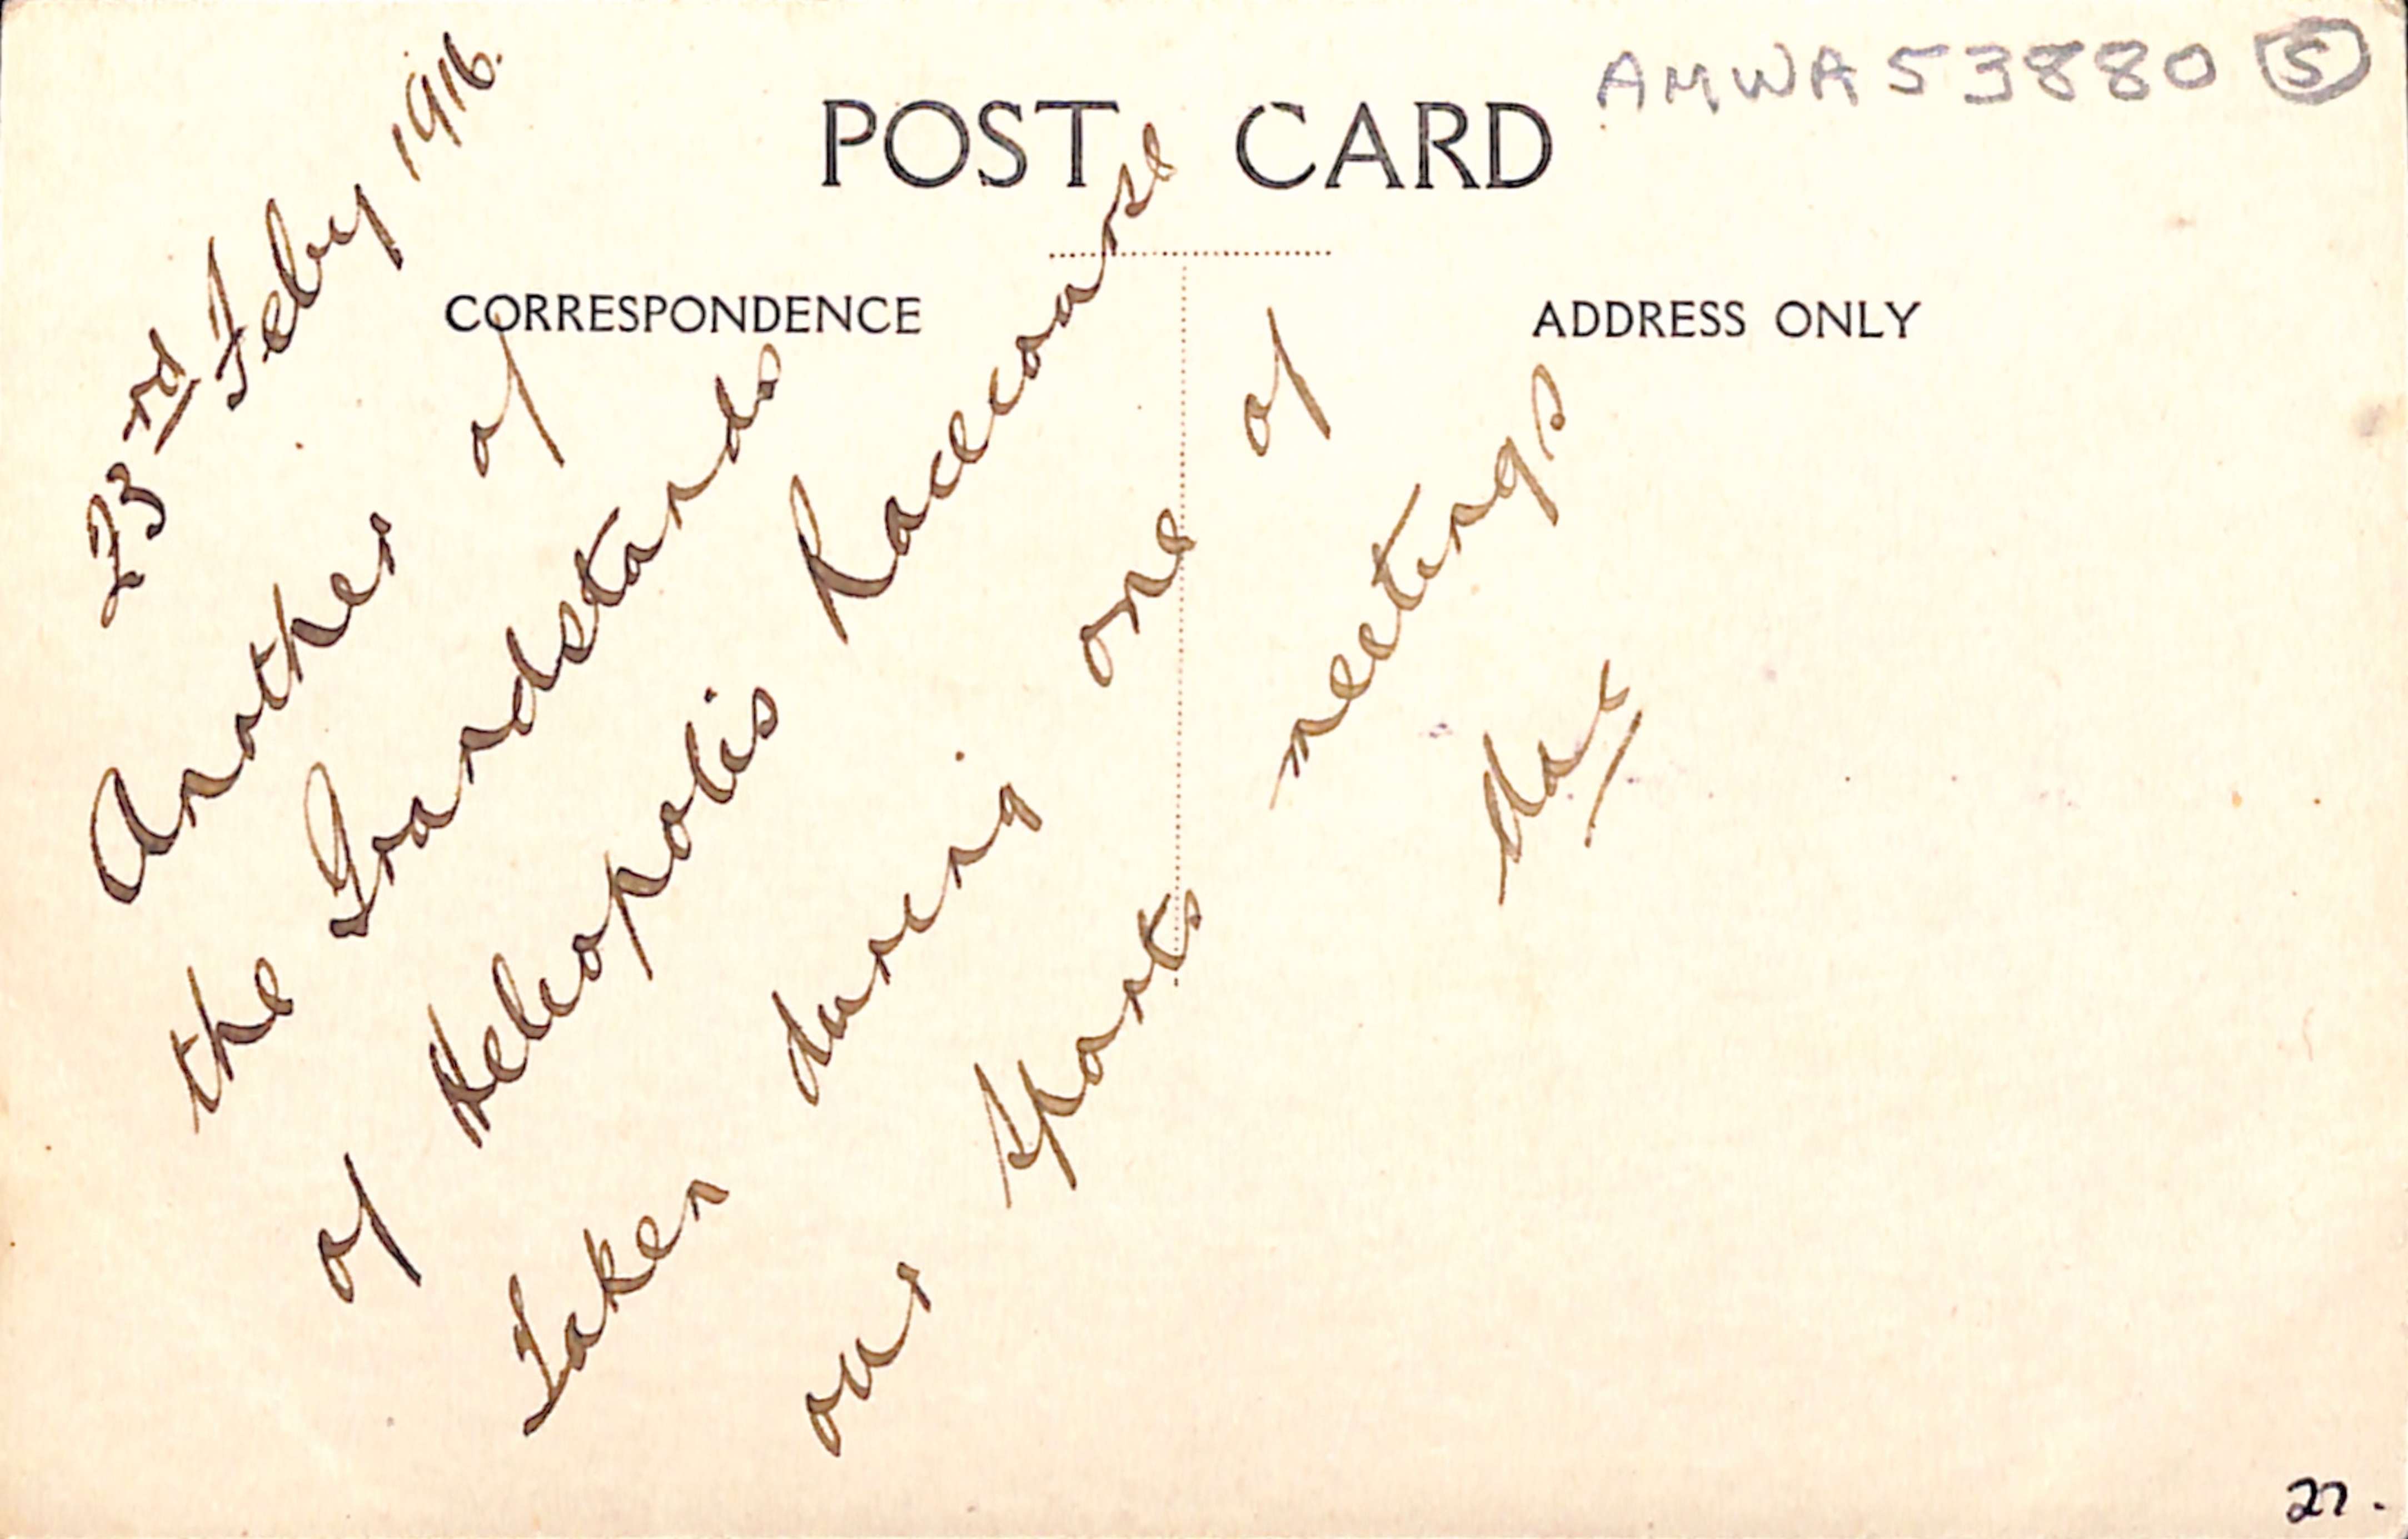 AMWA 53880 5
POST CARD
CORRESPONDENCE
ADDRESS ONLY
23rd Feby 1916.
Another of
the Grandstands
of Heliopolis Racecourse
Taken during one of
our sports meetings
27.